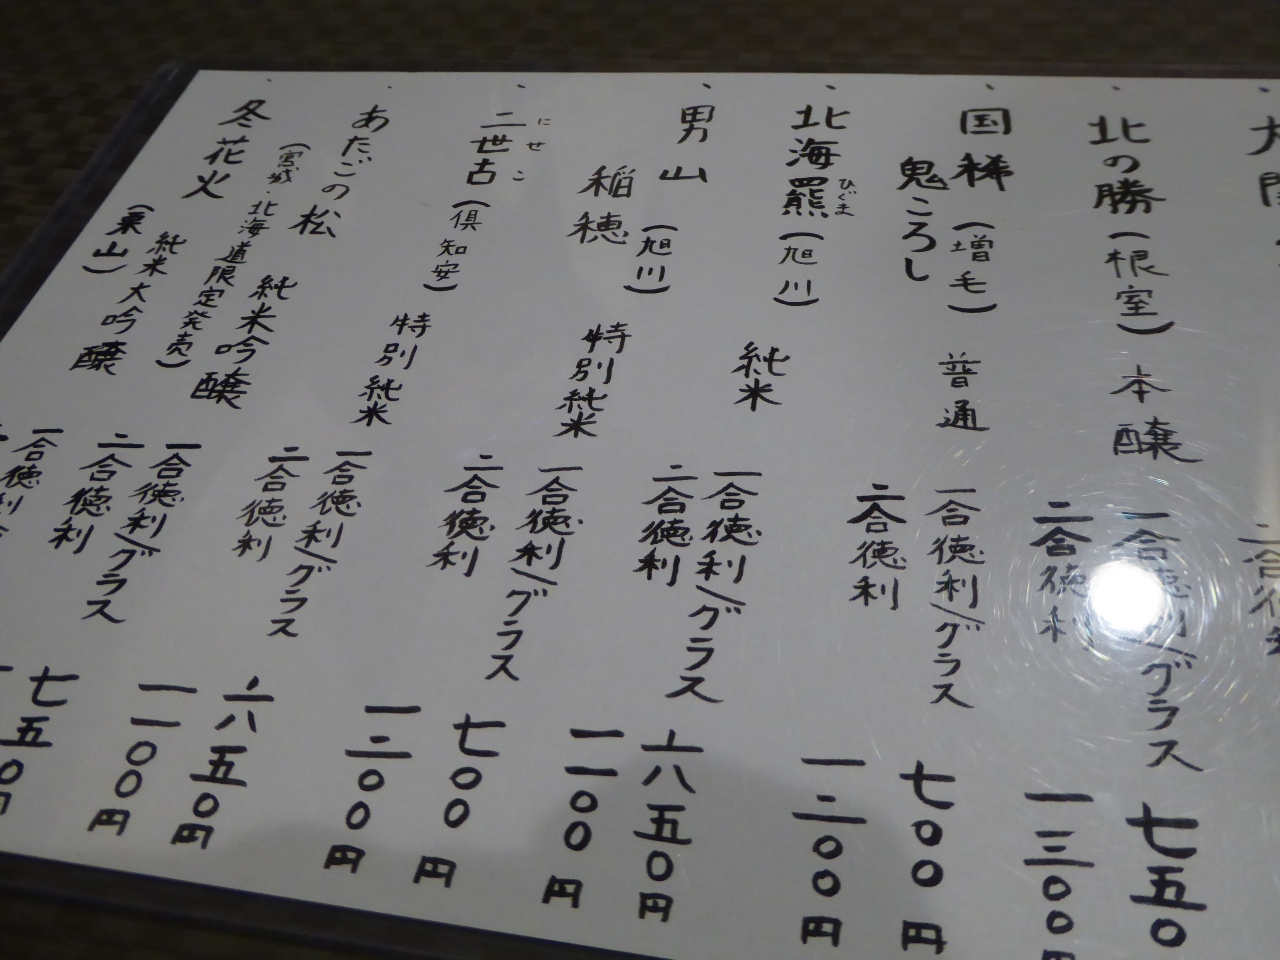 北の勝(根室)本醸
一合徳利/グラス 七五〇
二合徳利 一三〇〇円
国稀(増毛)普通
鬼ころし
一合徳利/グラス 七〇〇円
二合徳利 一二〇〇円
北海羆(旭川)純米
ひぐま
一合徳利/グラス 六五〇円
二合徳利 一一〇〇円
男山(旭川)特別純米
稲穂
一合徳利/グラス 七〇〇円
二合徳利 一二〇〇円
二世古(倶知安)特別純米
にせこ
一合徳利/グラス 六五〇円
二合徳利 一一〇〇円
あたごの松 純米吟醸
(宮城・北海道限定発売)
一合徳利/グラス 七五〇円
二合徳利
冬花火 純米大吟醸
(栗山)
一合徳利